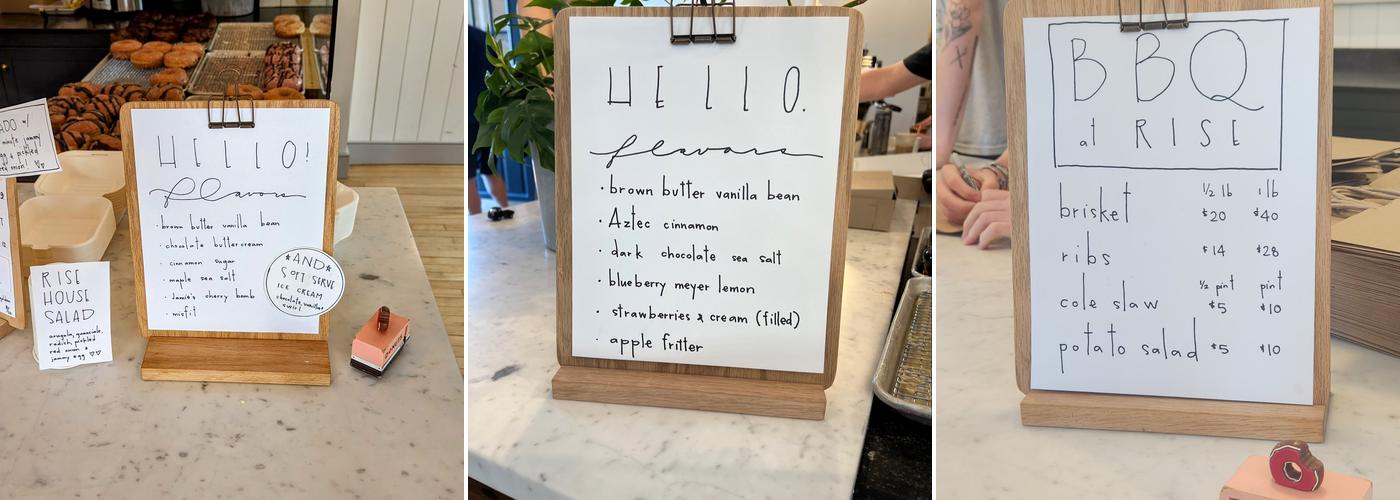 ADO w/
minute jammy
egg & pickled
red onion
RISE
HOUSE
SALAD
arugula, guanciale,
radish, pickled
red onion &
jammy egg ♡♡
HELLO!
flavors
· brown butter vanilla bean
· chocolate buttercream
· cinnamon sugar
· maple sea salt
· Jamie's cherry bomb
· misfit
*AND*
SOFT SERVE
ICE CREAM
chocolate, vanilla
swirl
HELLO.
flavors
· brown butter vanilla bean
· Aztec cinnamon
· dark chocolate sea salt
· blueberry meyer lemon
· strawberries & cream (filled)
· apple fritter
BBQ
at RISE
1/2 lb 1 lb
brisket $20 $40
ribs $14 $28
1/2 pint pint
cole slaw $5 $10
potato salad $5 $10